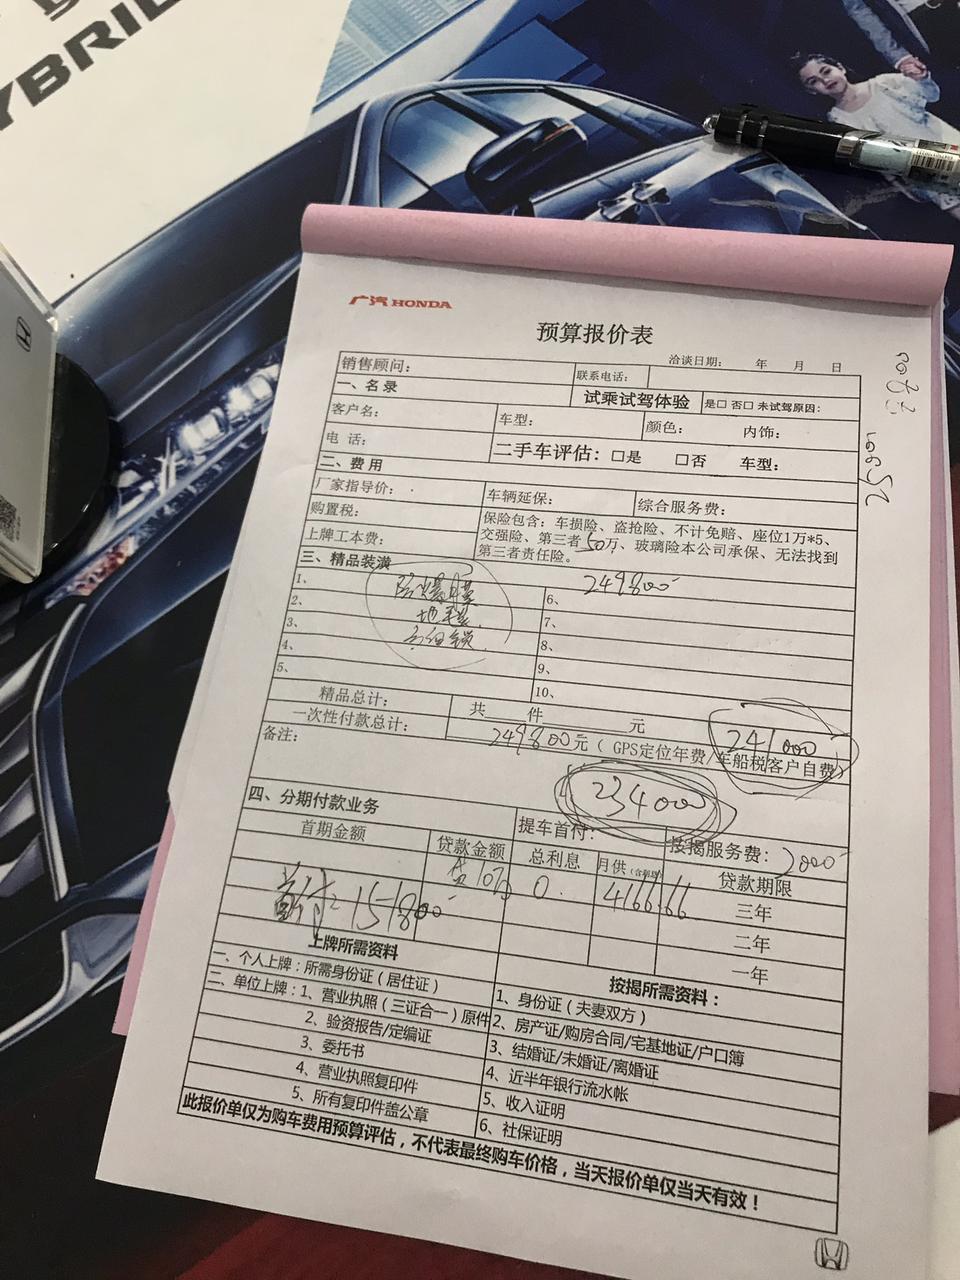 YBRID
广汽 HONDA
预算报价表
洽谈日期： 年 月 日
销售顾问：
联系电话：
一、名录
试乘试驾体验
是□ 否□ 未试驾原因：
客户名：
车型：
颜色：
内饰：
电 话：
二手车评估：□是 □否 车型：
二、费用
厂家指导价：
车辆延保：
综合服务费：
购置税：
保险包含：车损险、盗抢险、不计免赔、座位1万*5、
上牌工本费：
交强险、第三者50万、玻璃险本公司承保、无法找到
第三者责任险。
三、精品装潢
1、
防爆膜
6、
249800
2、
地毯
7、
3、
方向锁
8、
4、
9、
5、
10、
精品总计：
共 件 元
241000
一次性付款总计：
249800元（ GPS定位年费/车船税客户自费）
备注：
234000
四、分期付款业务
提车首付：
按揭服务费：2000
首期金额
贷款金额
总利息
月供
贷款期限
首付：151800
贷10万
0
4166.66
三年
二年
一年
上牌所需资料
按揭所需资料：
一、个人上牌：所需身份证（居住证）
1、身份证（夫妻双方）
二、单位上牌：1、营业执照（三证合一）原件
2、房产证/购房合同/宅基地证/户口簿
2、验资报告/定编证
3、结婚证/未婚证/离婚证
3、委托书
4、近半年银行流水帐
4、营业执照复印件
5、收入证明
5、所有复印件盖公章
6、社保证明
此报价单仅为购车费用预算评估，不代表最终购车价格，当天报价单仅当天有效！